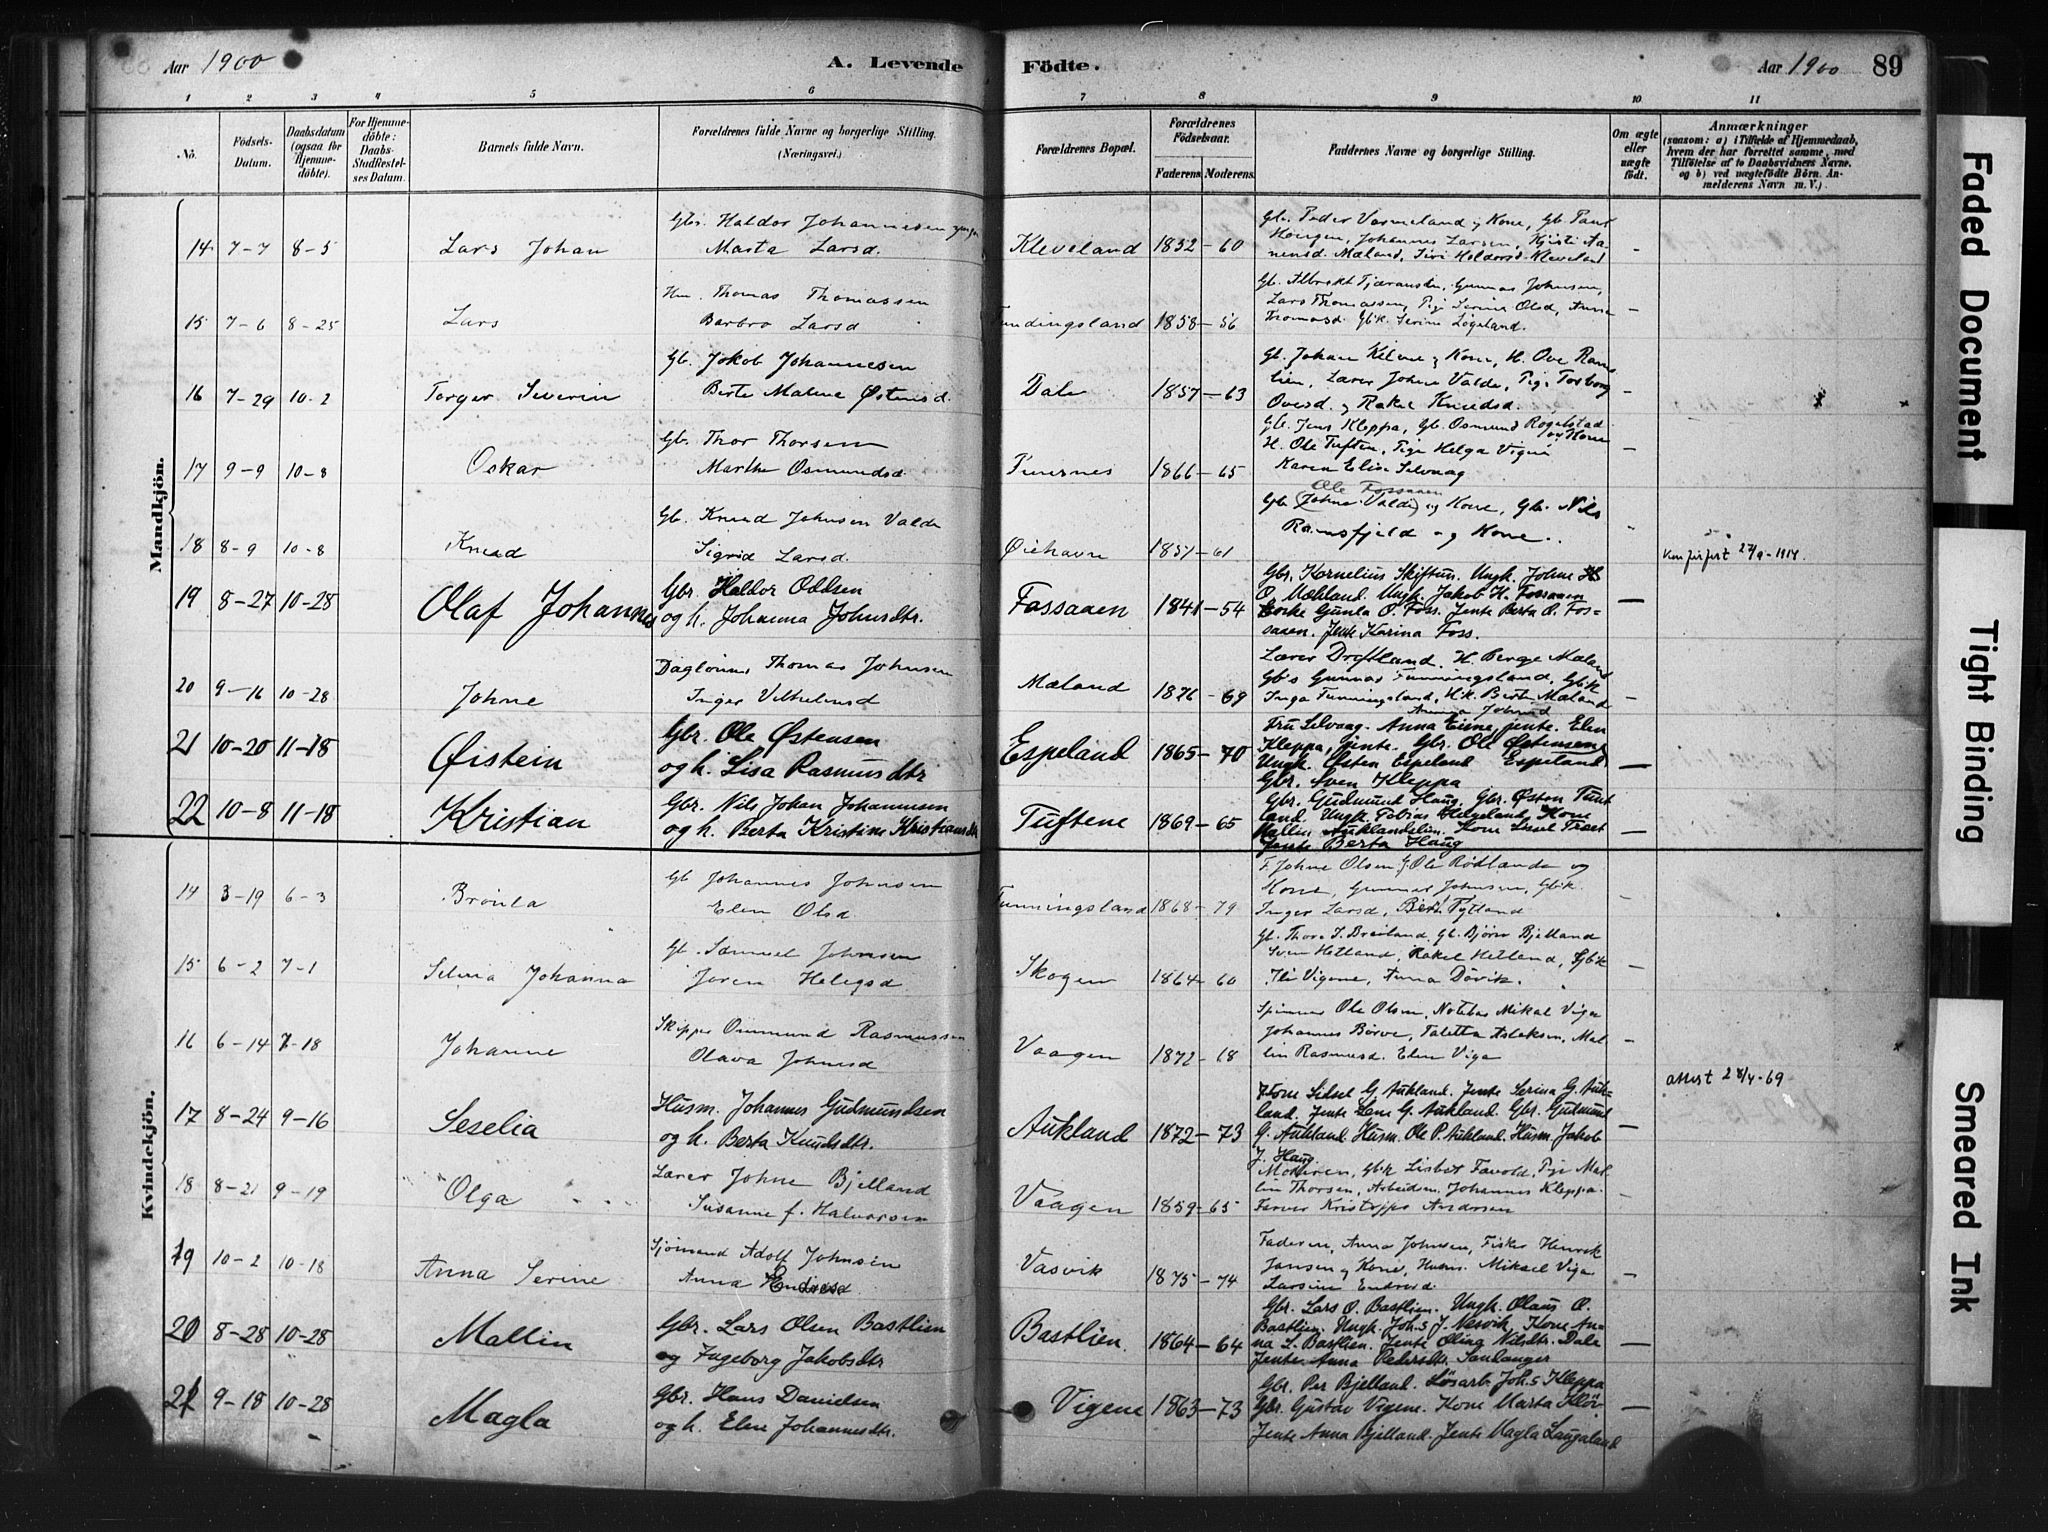 Aar 1900
A. Levende
Födte.
Aar 1900
89
1 2 3 4 5 6 7 8 9 10 11
No.
Födsels-
Datum.
Daabsdatum
(ogsaa för
Hjemme-
döbte).
For Hjemme-
döbte:
Daabs-
Stadfæstel-
ses Datum.
Barnets fulde Navn.
Forældrenes fulde Navne og borgerlige Stilling.
(Næringsvei.)
Forældrenes Bopæl.
Forældrenes
Födselsaar.
Faderens. Moderens.
Faddernes Navne og borgerlige Stilling.
Om ægte
eller
uægte
födt.
Anmærkninger
(saasom: a) i Tilfælde af Hjemmedaab,
hvem der har forrettet samme, med
Tilföielse af to Daabsvidners Navne.
og b) ved uægtefödte Börn. An-
melderens Navn m. V.)
Mandkjön.
14 7-7 8-5 Lars Johan
Gbr. Haldor Johannesen
Marta Larsd.
Kleveland 1852-60
Gb. Peder Varmeland og Kone, Gb.
Haugen, Johannes Larsen, Kjisti Aa-
nensd. Mæland, Siri Haldorsd. Kleveland
15 7-6 8-25 Lars
Hm. Thomas Thomassen
Barbro Larsd
Tundingsland 1858-56
Gunnar Johnsen,
Lars Thomassen, Pige Serine Olsd, Anna
Thomasd. Gbk. Serine Løgeland.
16 7-29 10-2 Torger Severin
Gb. Jokob Johannesen
Berte Malene Østensd.
Dale 1857-63
Gb. Johan Kelve og Kone, H. Ove Ram-
lien, Lærer Johne Valde, Pige Torborg
Ovesd. og Rakel Knudsd.
17 9-9 10-8 Oskar
Gb. Thor Thorsen
Marthe Osmundsd
1866-65
Gb. Jens Kleppa, Gb. Osmund Rogelstad
og Kone
H. Ole Tuften, Pige Helga Vigne
Karen Elise Selvaag
18 8-9 10-8 Knud
Gb. Knud Johnsen Valde
Sigrid Larsd.
Øiehavn 1857-61
Ole Fossaaen
Gb. (Johne Valde) og Kone, Gb. Nils
Ramsfjeld og Kone.
Konfirfert 27/9-1914.
19 8-27 10-28 Olaf Johannes
Gbr. Haldor Oddsen
og h. Johanna Johnsdtr.
Fossaaen 1841-54
Gbr. Kornelius Skiftun. Ungk. Johne H
O. Mæhland. Ungk. Jakob H. Fossaaen
Enke Gunla O. Foss. Jente Berta O. Fos-
saaen. Jente Karina Foss.
20 9-16 10-28 Johne
Dagløner Thomas Johnsen
Inger Vilhelmsd
Mæland 1876-69
Lærer Drøftland. H. Berge Mæland
Gb's Gunnar Tunningsland, Gbk
Inga Tunningsland, Hk. Berte Mæland
Anna Johnsd
21 10-20 11-18 Øistein
Gbr. Ole Østensen
og h. Lisa Rasmusdtr
Espeland 1865-70
Fru Selvaag. Anna Eiene, jente. Elen
Kleppa, jente. Gbr. Ole Østensen
Ungk. Østen Espeland Espeland
Gbr. Sven Kleppa
22 10-8 11-18 Kristian
Gbr. Nils Johan Johannesen
og h. Berta Kristine Kristiansdtr
Tuftene 1869-65
Gbr. Gudmund Haug. Gbr. Østen Tunt-
land. Ungk. Tobias Helgeland, Kone
Mallin Auklandslien. Kone Lisel Træet
Jente Berta Haug
Kvindekjön.
14 3-19 6-3 Brønla
Gb Johannes Johnsen
Elen Olsd
Tunningsland 1868-79
F. Johne Olsen, Ole Rødlanda og
Kone, Gunnar Johnsen, Gbk.
Inger Larsd, Berta Tytland
15 6-2 7-1 Selma Johanna
Gb. Samuel Johnsen
Joren Helegsd
Skogen 1864-60
Gb. Thore S. Breiland, Gb. Bjørn Bjelland
Sven Hetland, Rakel Hetland, Gbk
Vigene, Anna Døvik.
16 6-14 7-18 Johanne
Skipper Ommund Rasmussen
Olava Johnsd
Vaagen 1872-68
Spinner Ole Olsen, Notebas Mikal Viga
Johannes Børve, Taletta Aslaksen, Mal-
lin Rasmusd. Elen Viga
attest 28/4-69
17 8-24 9-16 Seselia
Husm. Johannes Gudmundsen
og h. Berta Knudsdtr.
Aukland 1872-73
Kone Sidsel G. Aukland. Jente Serina G. Auk-
land. Jente Lene G. Aukland. Gbr. Gudmund
G. Aukland. Husm. Ole P. Aukland. Husm. Jakob
J. Haug
18 8-21 9-19 Olga
Lærer Johne Bjelland
Susanne f. Halvorsen
Vaagen 1859-65
Moderen, Gbk Lisbet Favold, Pige Mal-
lin Thorsen, Arbeidsm. Johannes Kleppa.
Farver Kristoffer Andersen
19 10-2 10-18 Anna Serine
Sjømand Adolf Johnsen
Anna Endresd
Vasvik 1875-74
Faderen, Anna Johnsen, Fisker Henrik
Jansen og Kone, Husm. Mikael Viga
Larsine Endresd.
20 8-28 10-28 Mallin
Gbr. Lars Olsen Bastlien
og Ingeborg Jakobsdtr
Bastlien. 1864-64
Gbr. Lars O. Bastlien. Ungk. Olaus O.
Bastlien. Ungk. Johs J. Nesvik. Kone An-
na L. Bastlien. Jente Olina Nilsdtr. Dale
Jente Anna Pedersdtr Saulanger
21 9-18 10-28 Magla
Gbr. Hans Danielsen
og h. Elen Johannesdtr.
Vigene 1863-73
Gbr. Per Bjelland. Løsarb. Johs Kleppa
Gbr. Gustav Vigene. Kone Marta Kløv
Jente Anna Bjelland. Jente Magla Laugaland
Faded Document
Tight Binding
Smeared Ink